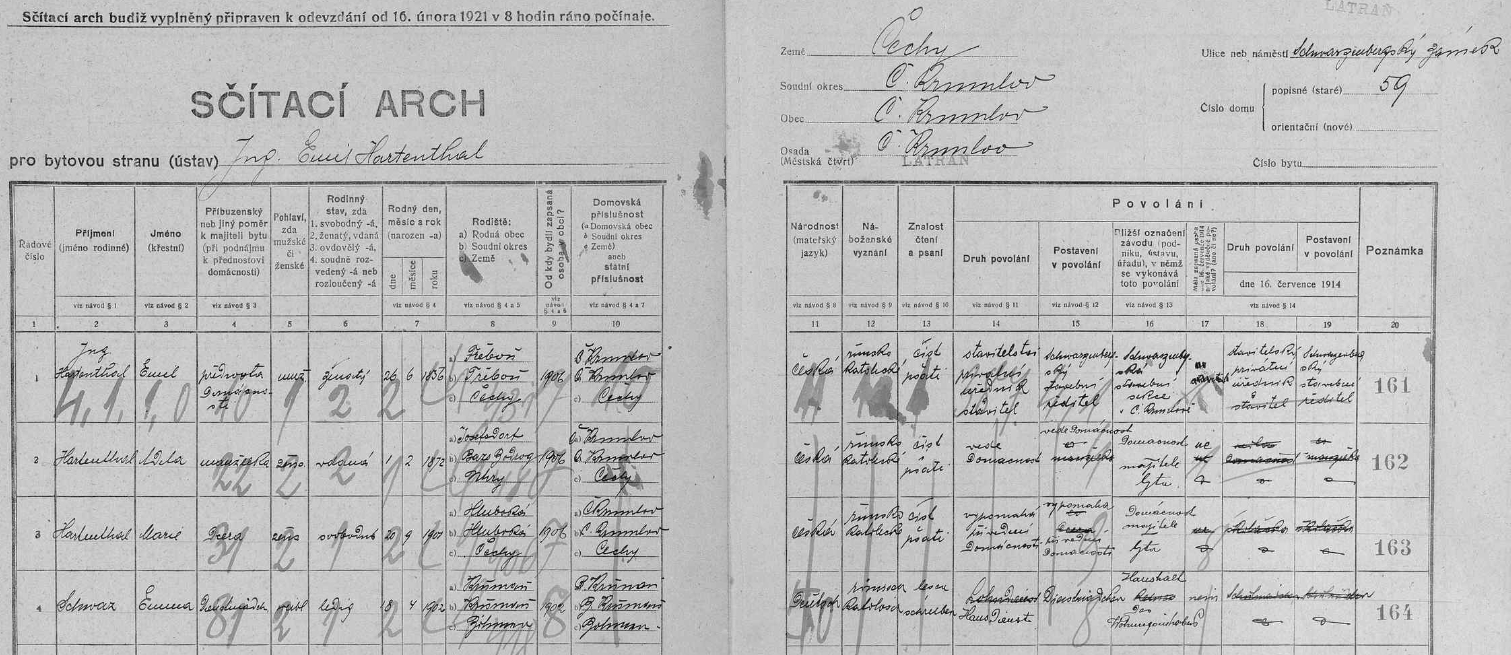 Sčítací arch budiž vyplněný připraven k odevzdání od 16. února 1921 v 8 hodin ráno počínaje.
SČÍTACÍ ARCH
pro bytovou stranu (ústav) Ing. Emil Hartenthal
LATRAN
Země Čechy
Soudní okres Č. Krumlov
Obec Č. Krumlov
Osada (Městská čtvrť) Č. Krumlov
LATRAN
Ulice neb náměstí Schwarzenbergský zámek
Číslo domu
popisné (staré) 59
orientační (nové)
Číslo bytu
Řadové číslo
Příjmení (jméno rodinné)
Jméno (křestní)
Příbuzenský neb jiný poměr k majiteli bytu (při podnájmu k přednostovi domácnosti)
Pohlaví, zda mužské či ženské
Rodinný stav, zda 1. svobodný -á, 2. ženatý, vdaná 3. ovdovělý -á, 4. soudně rozvedený -á neb rozloučený -á
Rodný den, měsíc a rok (narozen -a)
dne měsíce roku
Rodiště: a) Rodná obec b) Soudní okres c) Země
Od kdy bydlí zapsaná osoba v obci?
Domovská příslušnost (a Domovská obec b Soudní okres c Země) aneb státní příslušnost
viz návod § 1
viz návod § 2
viz návod § 3
viz návod § 4
viz návod § 4 a 5
viz návod § 4 a 7
1 2 3 4 5 6 7 8 9 10
Národnost (mateřský jazyk)
Náboženské vyznání
Znalost čtení a psaní
Povolání
Druh povolání
Postavení v povolání
Bližší označení závodu (podniku, ústavu, úřadu), v němž se vykonává toto povolání
Druh povolání
Postavení v povolání
dne 16. července 1914
Poznámka
viz návod § 8
viz návod § 9
viz návod § 10
viz návod § 11
viz návod § 12
viz návod § 13
viz návod § 14
11 12 13 14 15 16 17 18 19 20
1 Ing Hartenthal Emil přednosta domácnosti muž ženatý 26 6 1856
a) Třeboň b) Třeboň c) Čechy
1906
Č. Krumlov Č. Krumlov Čechy
česká římsko katolické číst psáti
stavitelství privátní úředník stavitel
Schwarzenbergský stavební ředitel
Schwarzenbergská stavební sekce Č. Krumlov
stavitelský privátní úředník stavitel
Schwarzenbergský stavební ředitel
161
2 Hartenthal Adela manželka žens. vdaná 1 2 1872
a) Josefsdorf b) c) Uhry
1906
Č. Krumlov Č. Krumlov Čechy
česká římsko katolické číst psáti
vede domácnost
vede domácnost manželka
Domácnost majitele bytu
ne
domácnost manželka
162
3 Hartenthal Marie dcera žens svobodná 20 9 1901
Hluboká Hluboká Čechy
1906
Č. Krumlov Č. Krumlov Čechy
česká římsko katolické číst psáti
vypomáhá při vedení domácnosti
vypomáhá dcera při vedení domácnosti
Domácnost majitele bytu
ne
163
4 Schwaz Emma Dienstmädchen weibl ledig 18 4 1902
Krumau Krumau Böhmen
1902
B. Krumau B. Krumau Böhmen
lesen schreiben
Haus Dienst
Dienstmädchen
Haushalt des
164